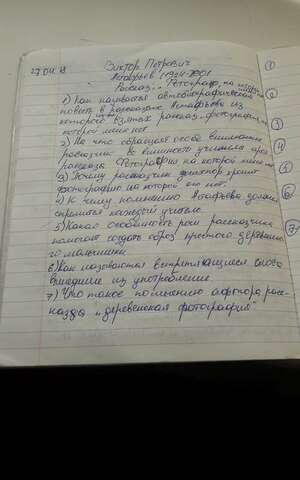 27.04.
Виктор Петрович
Астафьев (1924-2001
Рассказ „Фотограф, на которой
1) Как называется автобиографическая
повесть в рассказах Астафьева из
которой взятых рассказ „фотография, на
которой меня нет
2) На что обращает особое внимание
рассказчик в внешности учителя героя
рассказа Фотография на которой меня нет
3) Почему рассказчик хранит
фотографию на которой его нет.
4) К чему по мнению Астафьева должен
стремится каждый учитель.
5) Какая особенность речи рассказчика
помогает создать образ простого деревенско
го мальчишки
6) Как называются встречающиеся слова
вышедшие из употребления
7) Что такое по мнению автора рас-
сказа „деревенская фотография"
1
2
3
4
5
6
7